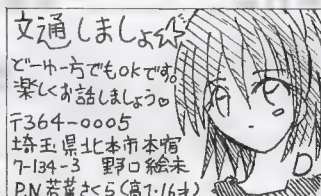 文通しましょ☆
どーゆー方でもOKです。
楽しくお話しましょう♡
〒364-0005
埼玉県北本市本宿
7-134-3 野口絵未
P.N 若葉さくら(高1・16才)